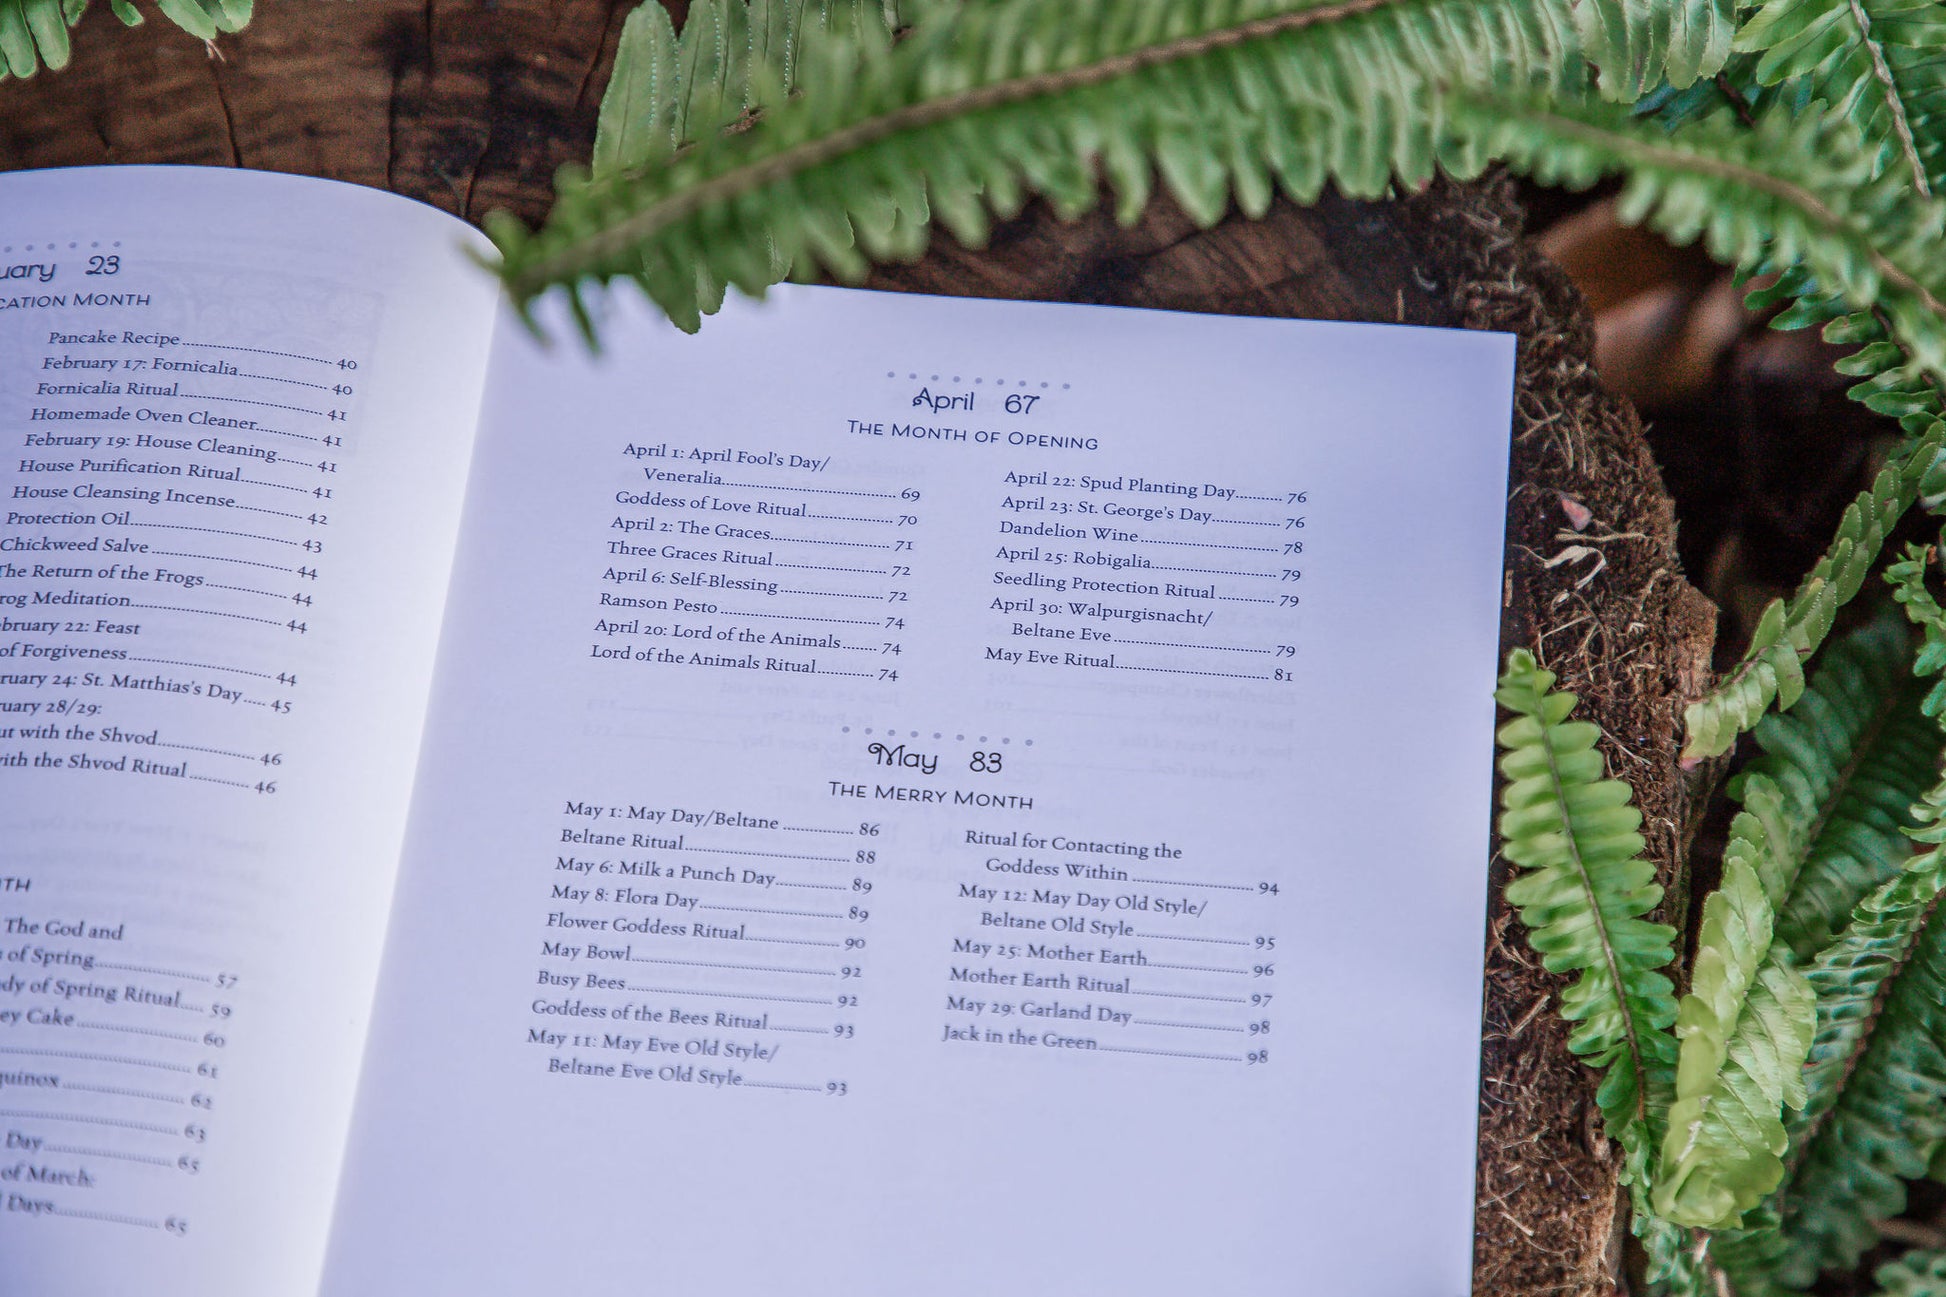 23
MONTH
Pancake Recipe 40
February 17: Fornicalia 40
Fornicalia Ritual 41
Homemade Oven Cleaner 41
February 19: House Cleaning 41
House Purification Ritual 41
House Cleansing Incense 42
Protection Oil 43
Chickweed Salve 44
The Return of the Frogs 44
Meditation 44
22: Feast
of Forgiveness 44
24: St. Matthias's Day 45
28/29:
with the Shvod 46
with the Shvod Ritual 46
The God and
of Spring 57
of Spring Ritual 59
Cake 60
61
62
63
Day 65
of March:
Days 65
April 67
THE MONTH OF OPENING
April 1: April Fool's Day/
Veneralia 69
Goddess of Love Ritual 70
April 2: The Graces 71
Three Graces Ritual 72
April 6: Self-Blessing 72
Ramson Pesto 74
April 20: Lord of the Animals 74
Lord of the Animals Ritual 74
April 22: Spud Planting Day 76
April 23: St. George's Day 76
Dandelion Wine 78
April 25: Robigalia 79
Seedling Protection Ritual 79
April 30: Walpurgisnacht/
Beltane Eve 79
May Eve Ritual 81
May 83
THE MERRY MONTH
May 1: May Day/Beltane 86
Beltane Ritual 88
May 6: Milk a Punch Day 89
May 8: Flora Day 89
Flower Goddess Ritual 90
May Bowl 92
Busy Bees 92
Goddess of the Bees Ritual 93
May 11: May Eve Old Style/
Beltane Eve Old Style 93
Ritual for Contacting the
Goddess Within 94
May 12: May Day Old Style/
Beltane Old Style 95
May 25: Mother Earth 96
Mother Earth Ritual 97
May 29: Garland Day 98
Jack in the Green 98